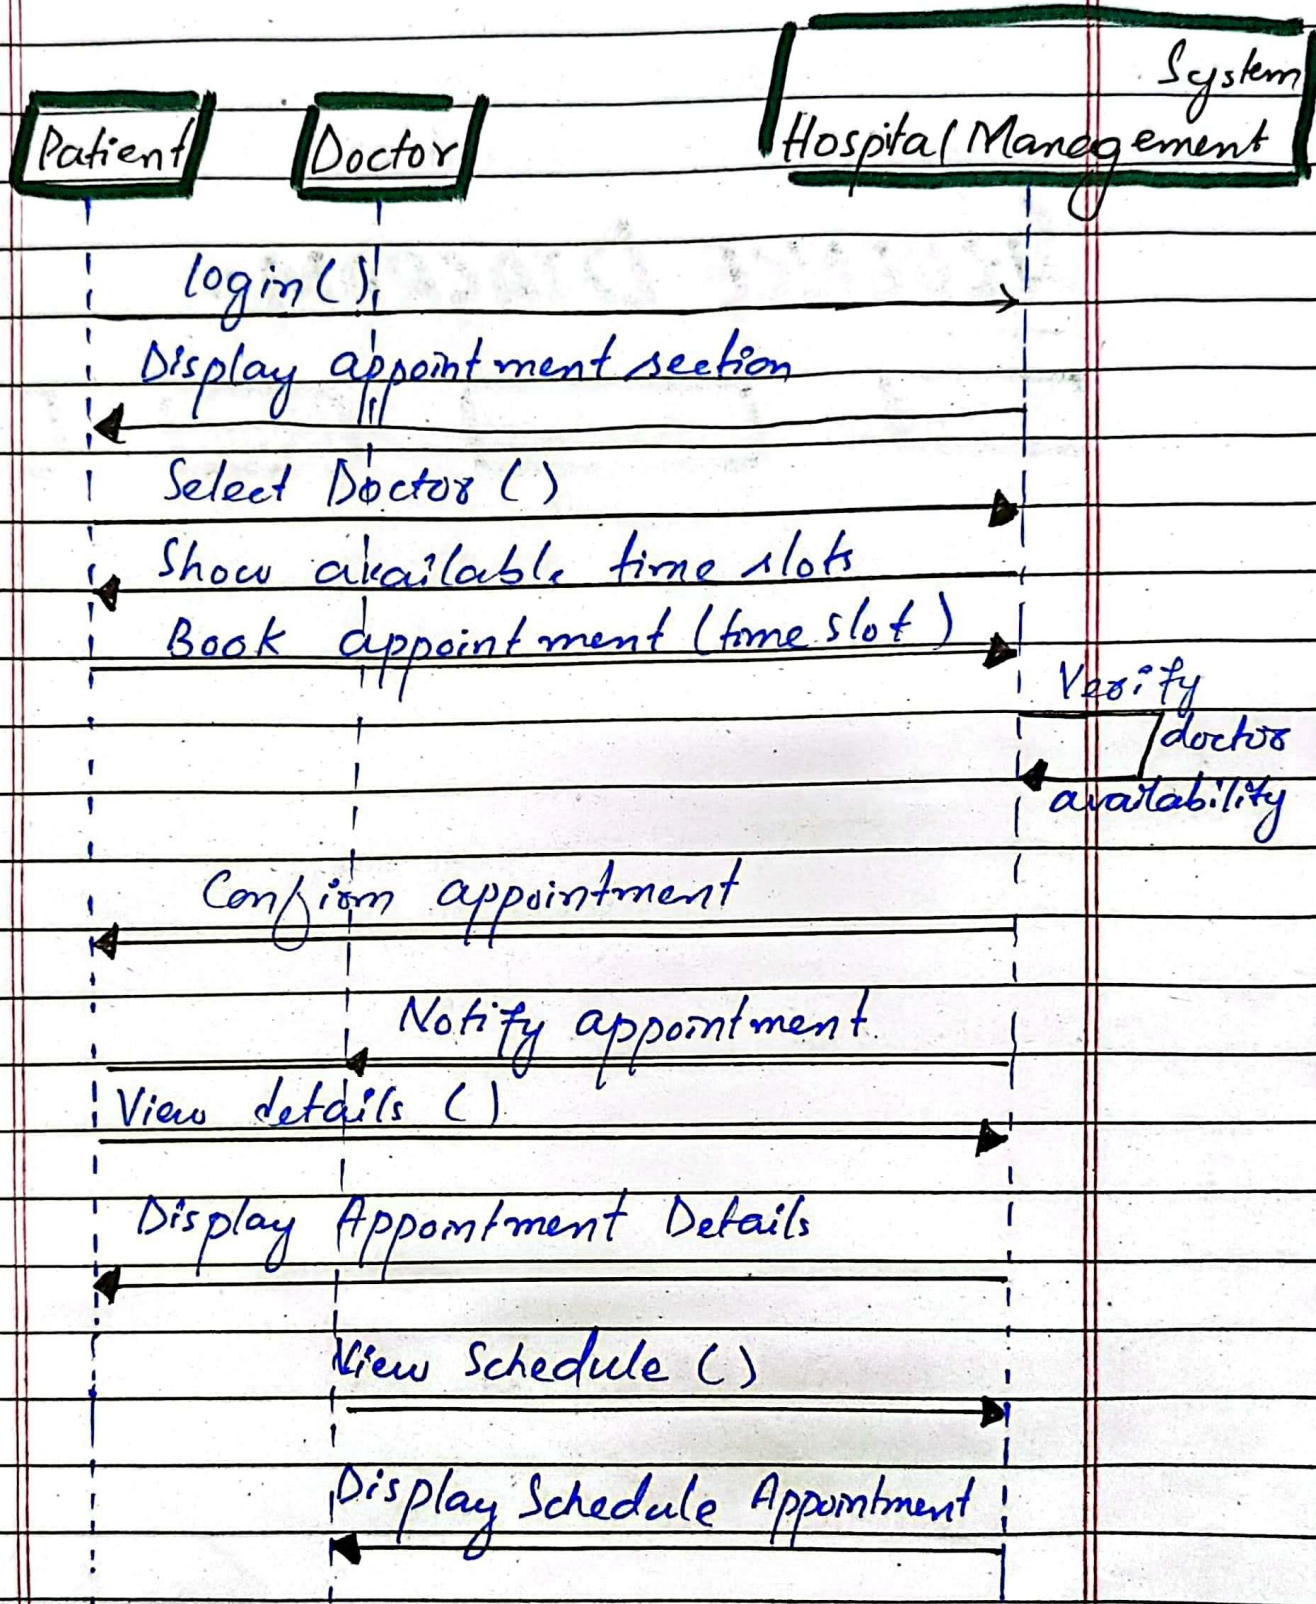 Patient
Doctor
System
Hospital Management
login()
Display appointment section
Select Doctor ()
Show available time slots
Book appointment (time slot)
Verify
doctor
availability
Confirm appointment
Notify appointment
View details ()
Display Appointment Details
View Schedule ()
Display Schedule Appointment